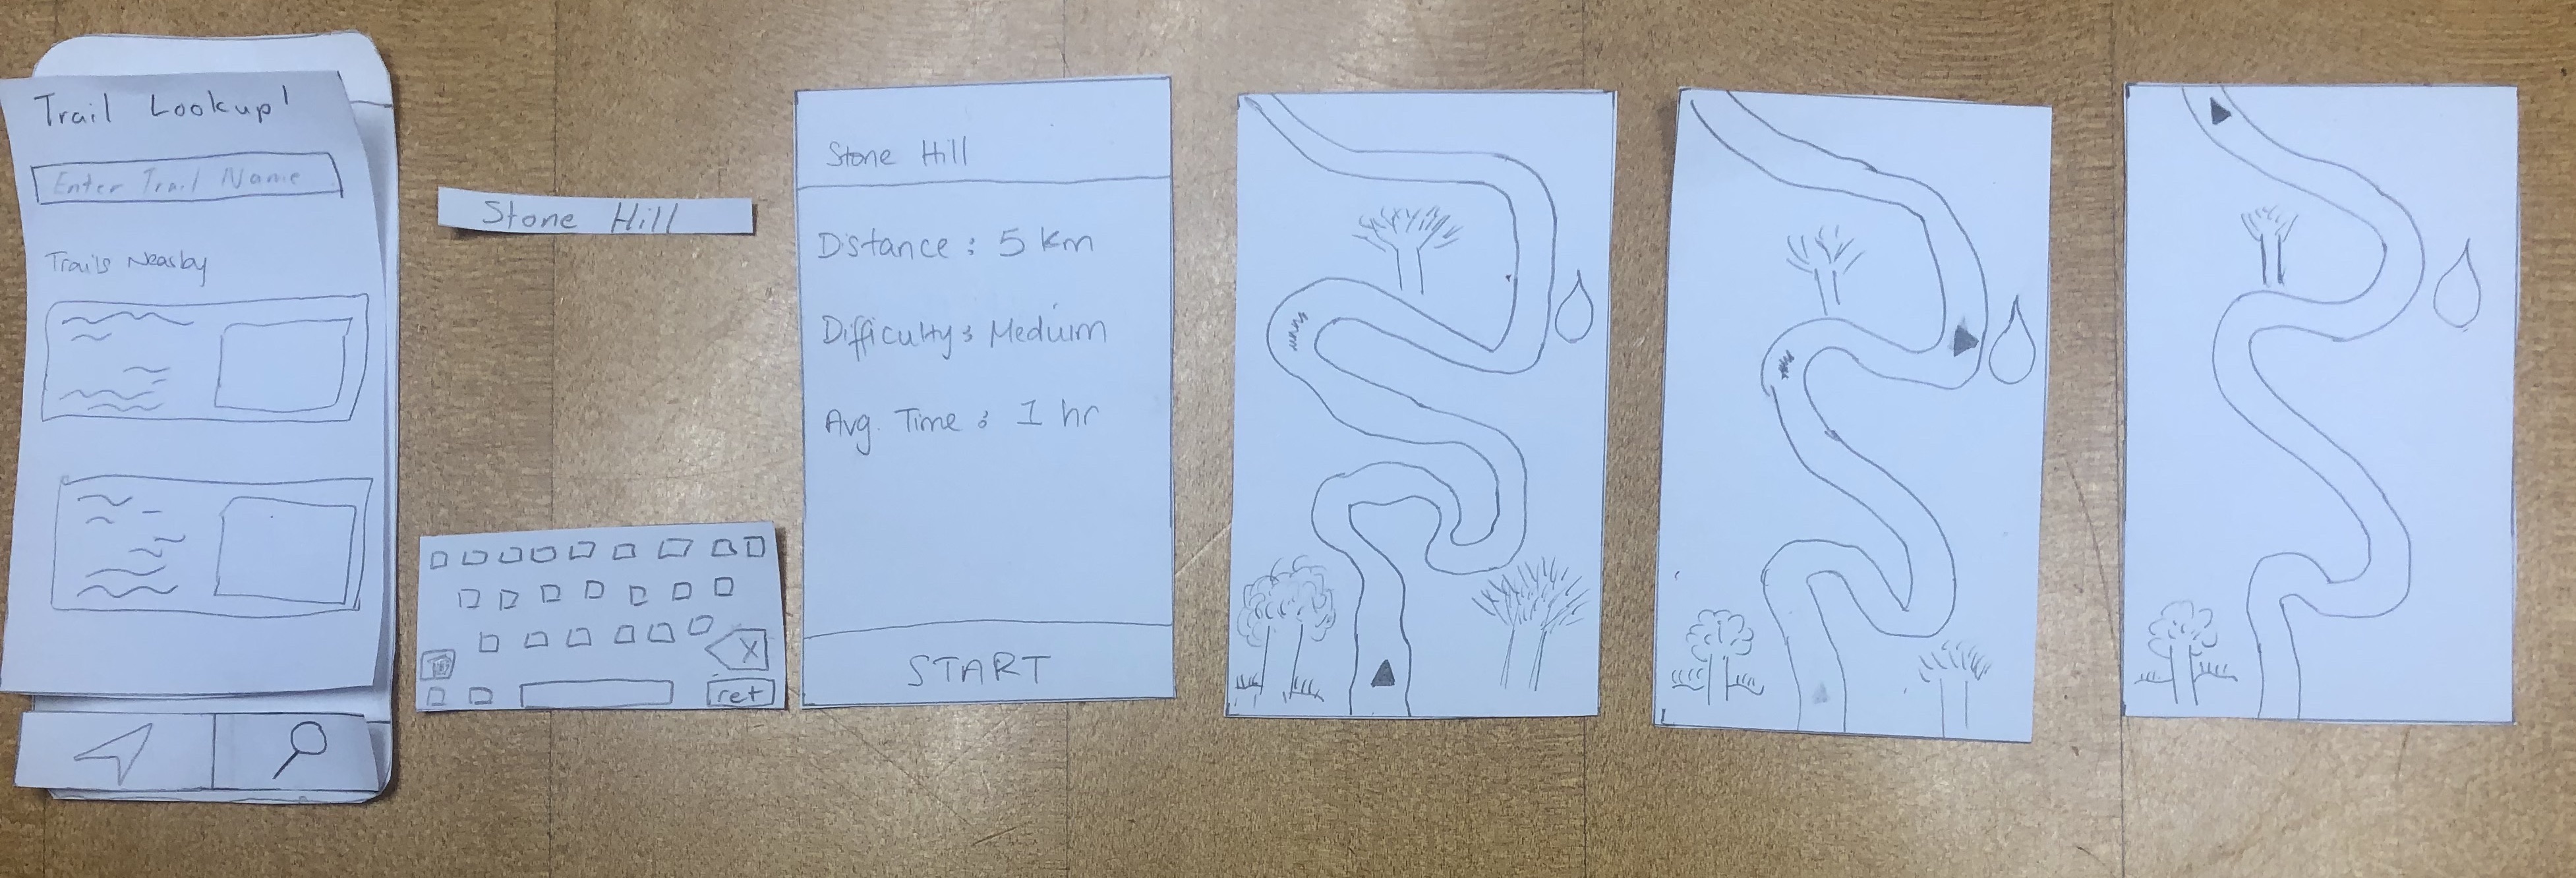 Trail Lookup!
Enter Trail Name
Trails Nearby
Stone Hill
X
ret
Stone Hill
Distance : 5 km
Difficulty : Medium
Avg. Time : 1 hr
START